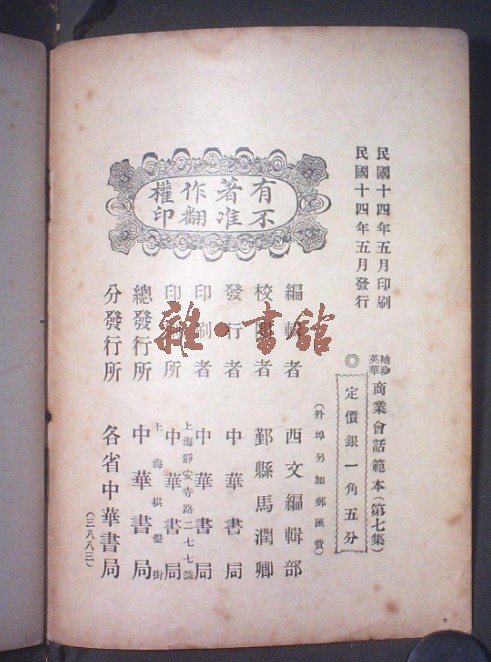 民國十四年五月印刷
民國十四年五月發行
有著作權
不准翻印
袖珍
英華
商業會話範本(第七集)
◎定價銀一角五分
(外埠另加郵匯費)
編輯者 西文編輯部
校閱者 鄞縣馬潤卿
發行者 中華書局
印刷者 中華書局
上海靜安寺路二七七號
印刷所 中華書局
上海棋盤街
總發行所 中華書局
分發行所 各省中華書局
(三八八三)
雜·書館